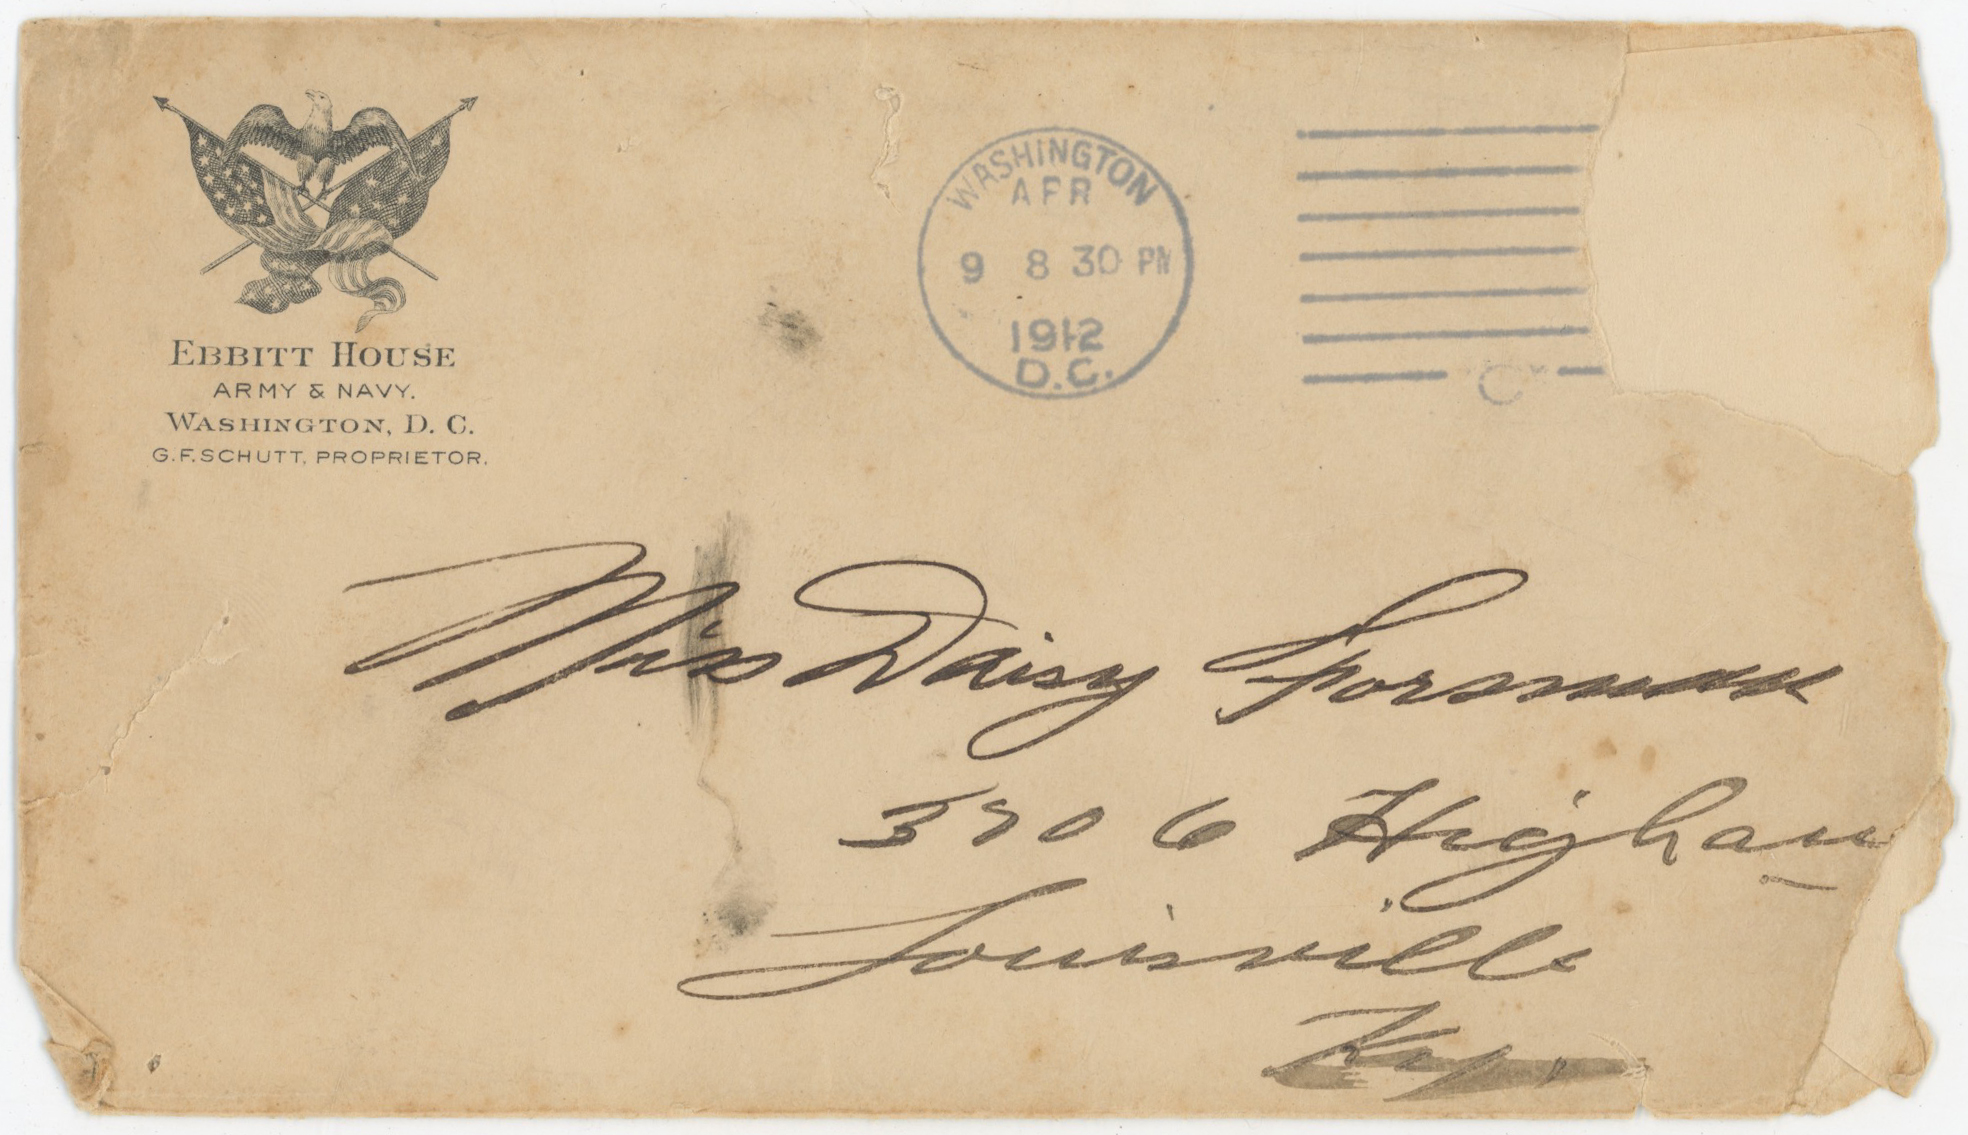 EBBITT HOUSE
ARMY & NAVY.
WASHINGTON, D. C.
G. F. SCHUTT, PROPRIETOR.
WASHINGTON
APR
9 8 30 PM
1912
D.C.
Miss Daisy Sporsman
3706 Higham
Louisville
Ky.